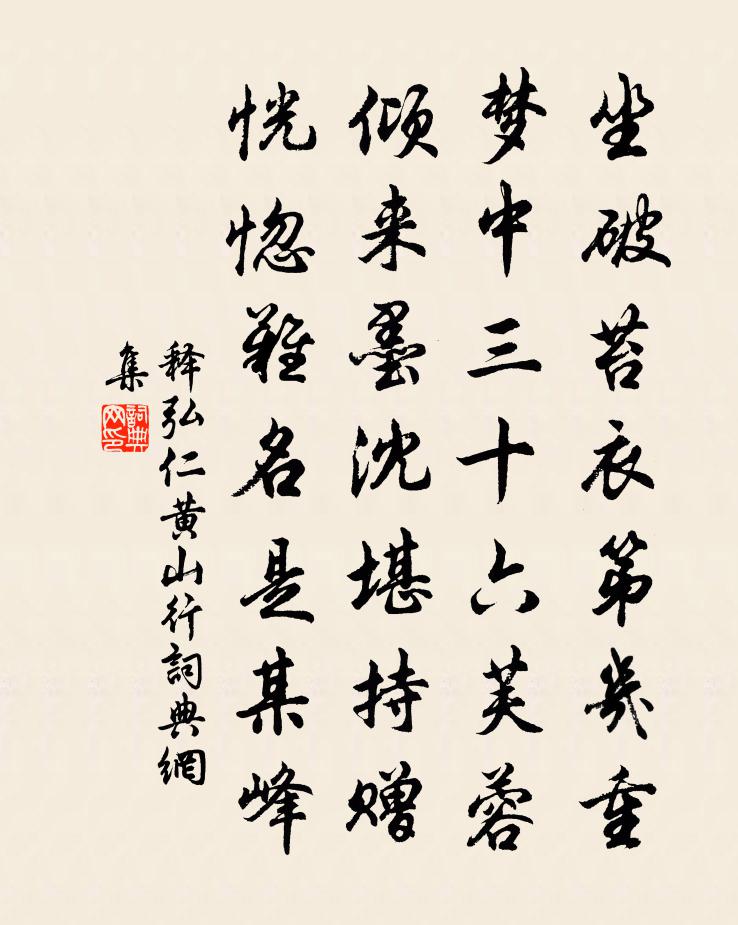 坐破苔衣第幾重
梦中三十六芙蓉
倾来墨沈堪持赠
恍惚難名是某峰
释弘仁黄山行詞典網
集
詞典网印